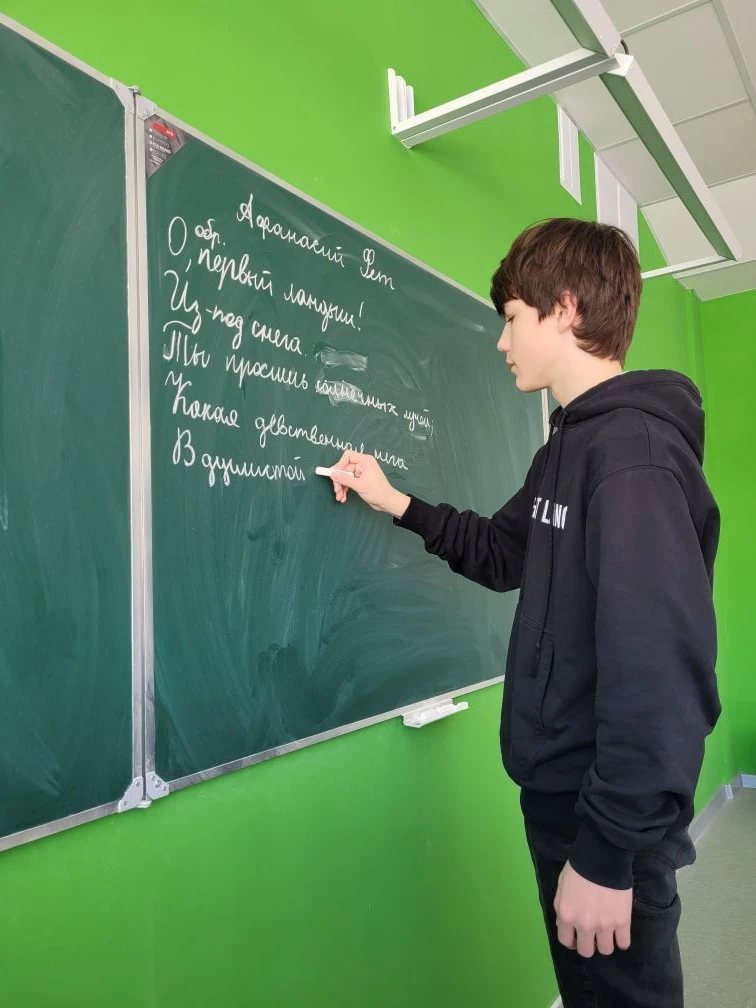 Афанасий Фет
обр.
О, первый ландыш!
Из-под снега
Ты просишь солнечных лучей;
Какая девственная нега
В душистой